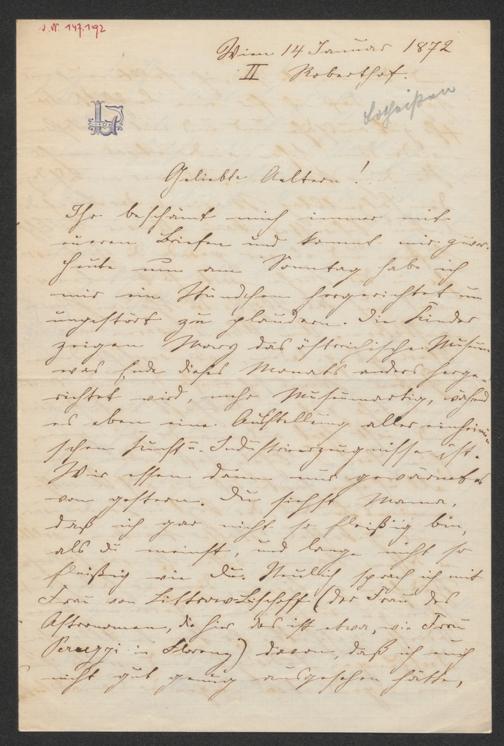 J. N. 147.192
Wien 14 Januar 1872
II Roberthof.
Geliebte Aeltern!
Ihr beschämt mich immer mit
eueren Briefen und kommt mir zuvor.
Heute nun am Sonntag habe ich
mir ein Stündchen hergerichtet um
ungestört zu plaudern. Die Kinder
zeigen Mary das östreichische Museum
was Ende dieses Monats anders herge-
richtet wird, mehr Museumartig, während
es eben eine Ausstellung aller einheimi-
schen Kunst u. Industrieerzeugnisse ist.
Wir essen dann nur gewärmtes
von gestern. Du siehst Mama,
daß ich gar nicht so fleißig bin,
als du meinst, und lange nicht so
fleißig wie Du. Neulich sprach ich mit
Frau von Littrow-Bischoff (der Frau des
Astronomen, die hier das ist etwa, wie Frau
Peruzzi in Florenz) davon, daß ich euch
nicht gut genug ausgesehen hätte,